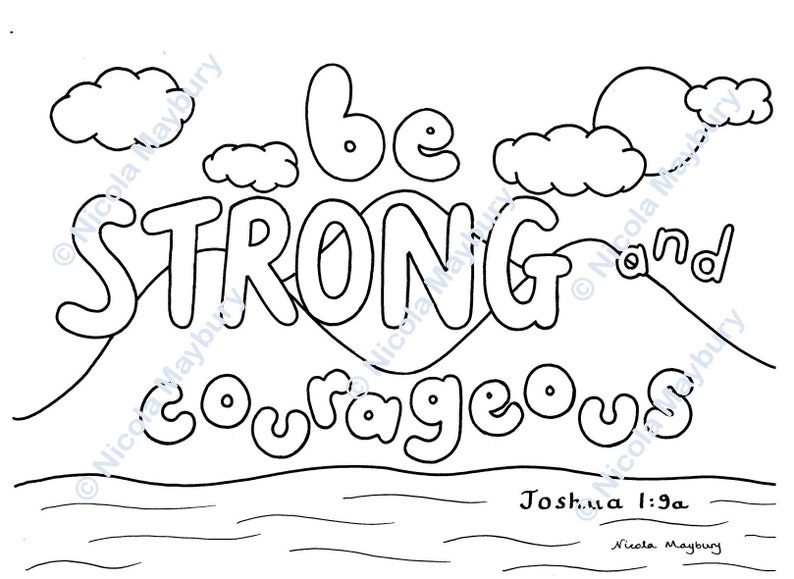 be
STRONG and
courageous
Joshua 1:9a
Nicola Maybury
© Nicola Maybury
© Nicola Maybury
© Nicola Maybury
© Nicola Maybury
© Nicola Maybury
© Nicola Maybury